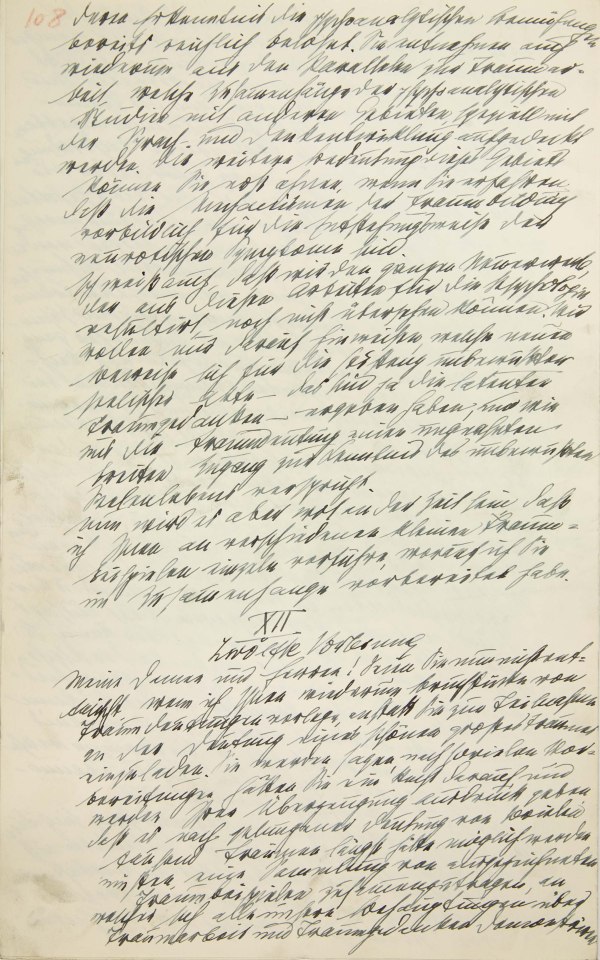 108
deren Erkenntnis die psychoanalytischen Bemühungen
bereits reichlich belohnt. Sie entnehmen auch
wiederum aus den Parallelen zur Traumar-
beit, welche Zusammenhänge der psychoanalytischen
Studien mit anderen Gebieten, speziell mit
der Sprach- und Denkentwicklung aufgedeckt
werden. Die weitere Bedeutung dieser
können Sie erst ahnen, wenn Sie erfahren,
daß die Mechanismen der Traumbildung
vorbildlich für die Entstehungsweise der
neurotischen Symptome sind.
Ich weiß auch, daß wir den ganzen Neuerwerb,
der aus diesen Arbeiten für die Psychologie
resultirt, noch nicht übersehen können. Wir
wollen nur darauf hinweisen, welche neuen
Beweise sich für die Existenz unbewußter
seelischer Akte – das sind ja die latenten
Traumgedanken – ergeben haben, und wie
uns die Traumdeutung einen ungeahnten
breiten Zugang zur Kenntnis des unbewußten
Seelenlebens verspricht.
Nun wird es aber wol an der Zeit sein, daß
ich Ihnen an verschiedenen kleinen Traum-
beispielen einzeln vorführe, worauf ich Sie
im Zusammenhange vorbereitet habe.
XII
Zwölfte Vorlesung
Meine Damen und Herren! Seien Sie nun nicht ent-
täuscht, wenn ich Ihnen wiederum Bruchstücke von
Traumdeutungen vorlege, anstatt Sie zur Teilnahme
an der Deutung eines schönen großen Traumes
einzuladen. Sie werden sagen, nach so vielen Vor-
bereitungen hätten Sie ein Recht darauf und
werden Ihrer Überzeugung Ausdruck geben,
daß es nach gelungener Deutung von soviel
tausend Träumen längst hätte möglich werden
müssen, eine Sammlung von ausgezeichneten
Traumbeispielen zusammenzutragen, an
welcher sich alle unsere Behauptungen über
Traumarbeit und Traumgedanken demonstriren